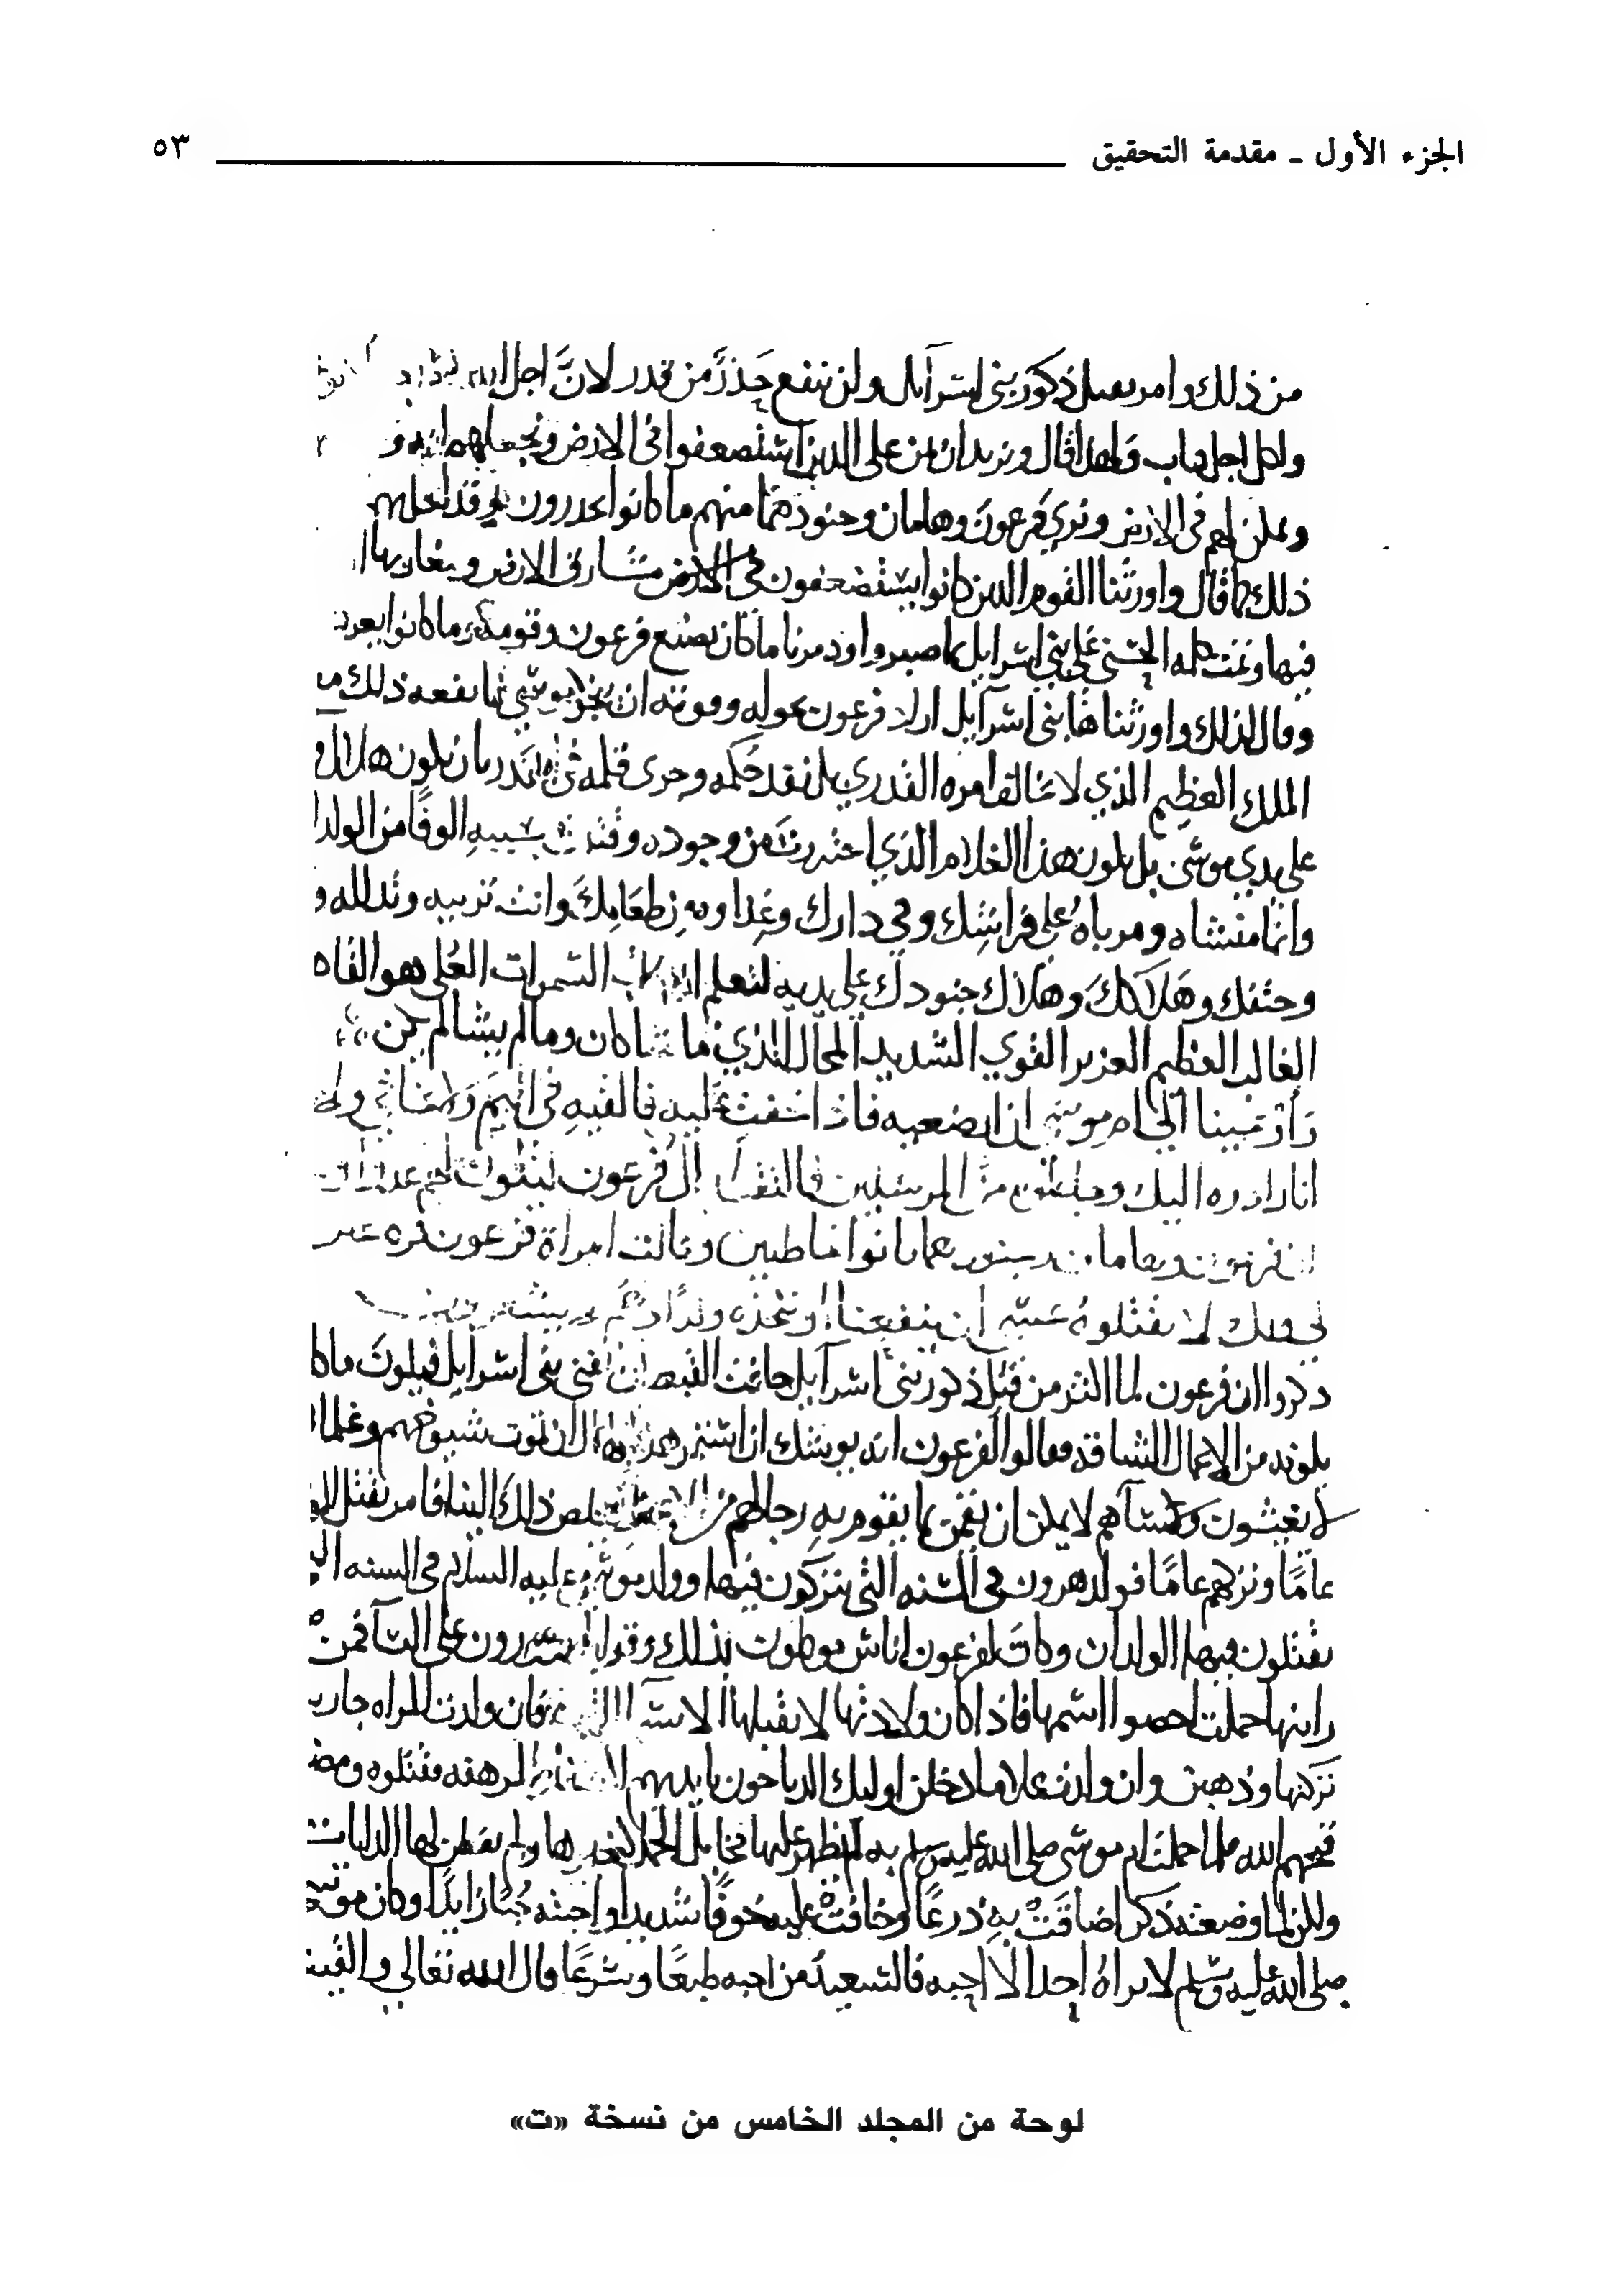 الجزء الأول ـ مقدمة التحقيق ٥٣
من ذلك وامر بقتل ذكور بنى اسرآيل ولن ينفع حَذَرٌ من قدر لانَّ اجل الله
ولكل اجل كتاب ولهذا قال ونريد ان نمن على الذين استضعفوا فى الارض ونجعلهم ايمه و
ونمكن لهم فى الارض ونري فرعون وهامان وجنودهما منهم ما كانوا يحذرون وقد فعل بهم
ذلك كما قال واورثنا القوم الذين كانوا يستضعفون فى الارض مشارق الارض ومغاربها ا
فيها وتمت كلمه الحسنى على بنى اسرايل بما صبروا ودمرنا ما كان يصنع فرعون وقومه وما كانوا يعرد
وقال كذلك واورثناها بنى اسرآيل اراد فرعون بحوله وقوته ان ينجو من موسى فما نفعه ذلك مـ
الملك العظيم الذي لا يخالف امره القدري بل نفذ حكمه وجرى قلمه فى بان يكون هلاك
على يدي موسى بل يكون هذا الغلام الذي احترزت من وجوده وقتلت بسببه الوفًا من الولدا
وانما منشاه ومرباه على فراشك وفي دارك وغذاوه من طعامك وانت تربيه وتدلله و
وحتفك وهلاكك وهلاك جنودك على يديه لتعلم ان رب السموات العلى هو القاه
الغالب العظيم العزيز القوي الشديد المحال الذي ما شا كان وما لم يشا لم يكن
وأوحينا الى ام موسى ان ارضعيه فاذا خفت عليه فالقيه فى اليم ولا تخافى ولا
انا رادوه اليك وجاعلوه من المرسلين فالتقطه ال فرعون ليكون لهم عدوا
ان فرعون وهامان وجنودهما كانوا خاطيين وقالت امراة فرعون قره عين
لى ولك لا تقتلوه عسى ان ينفعنا او نتخذه ولدًا وهم لا يشعرون
ذكروا ان فرعون لما اكثر من قتل ذكور بنى اسرآيل خافت القبط ان يفنى بنى اسرايل فيلون ما كا
يلونه من الاعمال الشاقه فقالوا لفرعون انه يوشك ان استمر هذا الحال ان تموت شيوخهم وغلما
لا يعيشون ونساهم لا يمكن ان يقمن بما يقوم به رجالهم من الاعمال فيخلص ذلك الينا فامر بقتل الو
عامًا وتركهم عامًا فولد هرون فى السنه التى يتركون فيها وولد موسى عليه السلام فى السنه الـ
يقتلون فيها الولدان وكان لفرعون اناس موكلون بذلك وقوابل يدورون على النسآ فمن
راينها حملت احصوا اسمها فاذا كان ولادتها لا يقبلها الا نسآ فان ولدت المراه جاريه
تركنها وذهبن وان ولدت غلاما دخل اوليك الذباحون بايديهم الشفار المرهفه فقتلوه ومضـ
قبحهم الله فلما حملت ام موسى صلى الله عليه وسلم به لم يظهر عليها مخايل الحمل كغيرها ولم تفطن لها الدايات
ولكن لما وضعته ذكرا ضاقت به ذرعًا وخافت عليه خوفًا شديدا واحبته حُبًا زايدًا وكان موسى
صلى الله عليه وسلم لا يراه احد الا احبه فالسعيد من احبه طبعًا وشرعًا قال الله تعالى والقيت
لوحة من المجلد الخامس من نسخة «ت»